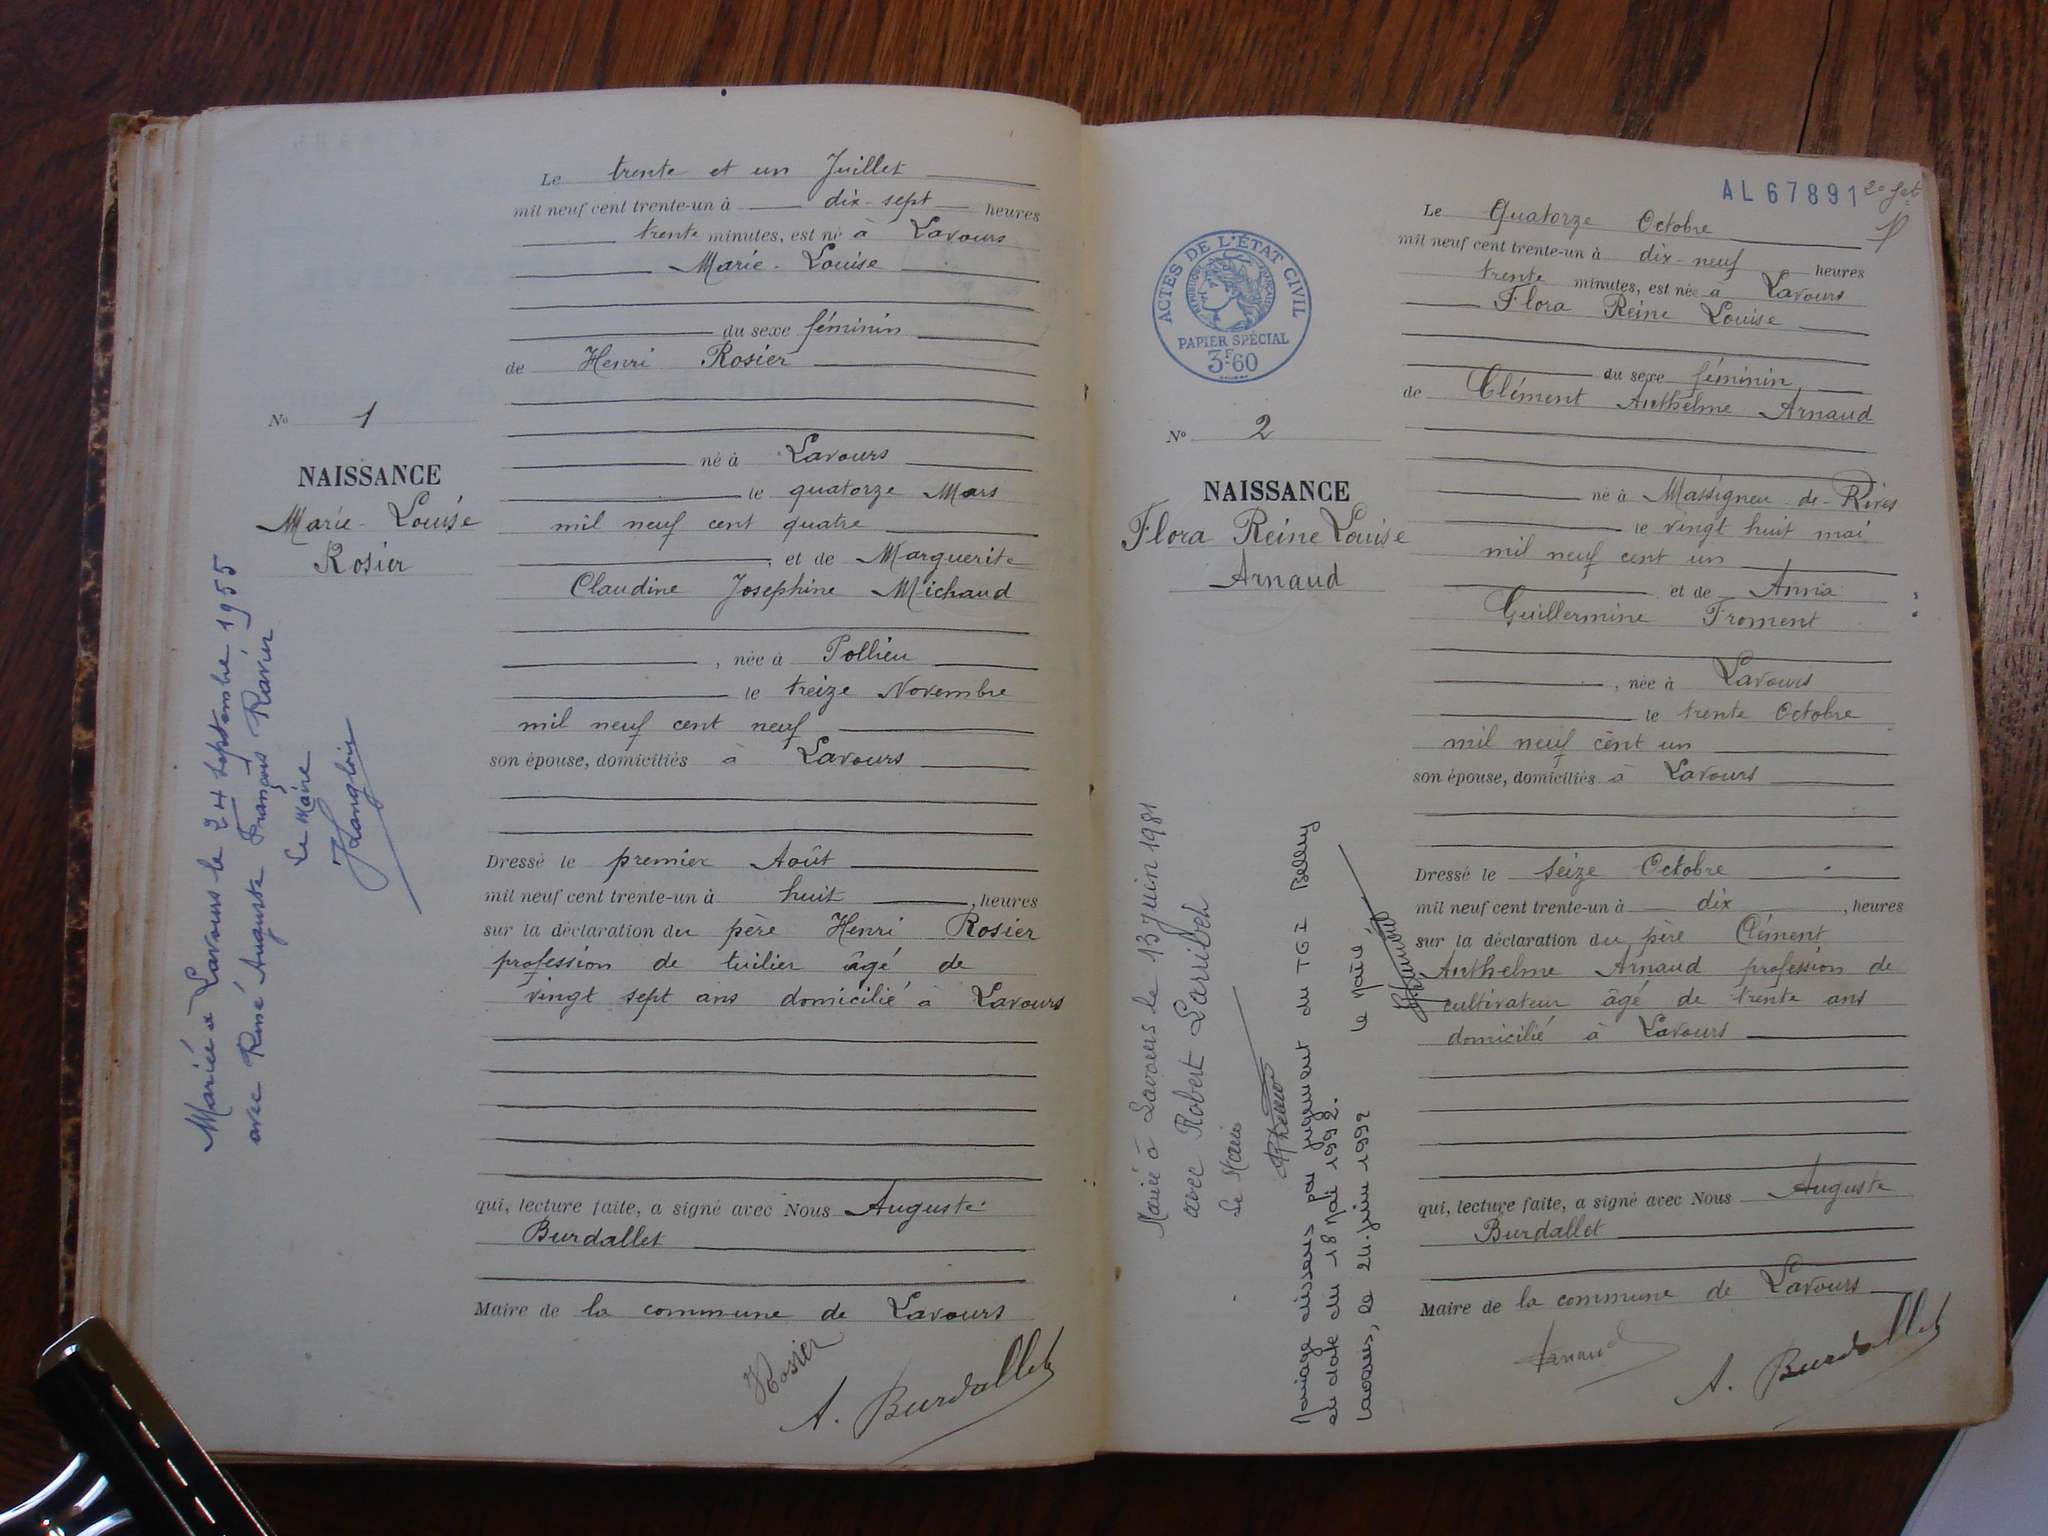 Le trente et un Juillet
mil neuf cent trente-un à dix-sept heures
trente minutes, est né à Lavours
Marie-Louise
du sexe féminin
de Henri Rosier
né à Lavours
le quatorze Mars
mil neuf cent quatre
et de Marguerite
Claudine Josephine Michaud
, née à Pollieu
le treize Novembre
mil neuf cent neuf
son épouse, domiciliés à Lavours
Dressé le premier Août
mil neuf cent trente-un à huit , heures
sur la déclaration du père Henri Rosier
profession de tuilier âgé de
vingt sept ans domicilié à Lavours
qui, lecture faite, a signé avec Nous Auguste
Burdallet
Maire de la commune de Lavours
Rosier
A. Burdallet
No 1
NAISSANCE
Marie-Louise
Rosier
Mariée à Lavours le 24 septembre 1955
avec René Auguste François Ravier
Le Maire
AL 67891
Le Quatorze Octobre
mil neuf cent trente-un à dix-neuf heures
trente minutes, est née à Lavours
Flora Reine Louise
du sexe féminin
de Clément Anthelme Arnaud
né à Massigneu-de-Rives
le vingt huit mai
mil neuf cent un
et de Anna
Guillermine Froment
, née à Lavours
le trente Octobre
mil neuf cent un
son épouse, domiciliés à Lavours
Dressé le seize Octobre
mil neuf cent trente-un à dix , heures
sur la déclaration du père Clément
Anthelme Arnaud profession de
cultivateur âgé de trente ans
domicilié à Lavours
qui, lecture faite, a signé avec Nous Auguste
Burdallet
Maire de la commune de Lavours
Arnaud
A. Burdallet
ACTES DE L'ÉTAT CIVIL
RÉPUBLIQUE FRANÇAISE
PAPIER SPÉCIAL
3F60
No 2
NAISSANCE
Flora Reine Louise
Arnaud
Mariée à Lavours le 13 juin 1981
avec Robert Larribeh
Le Maire
Mariage dissous par jugement du TGI Belley
en date du 18 Mai 1992.
Lavours, le 24 juin 1992 le Maire